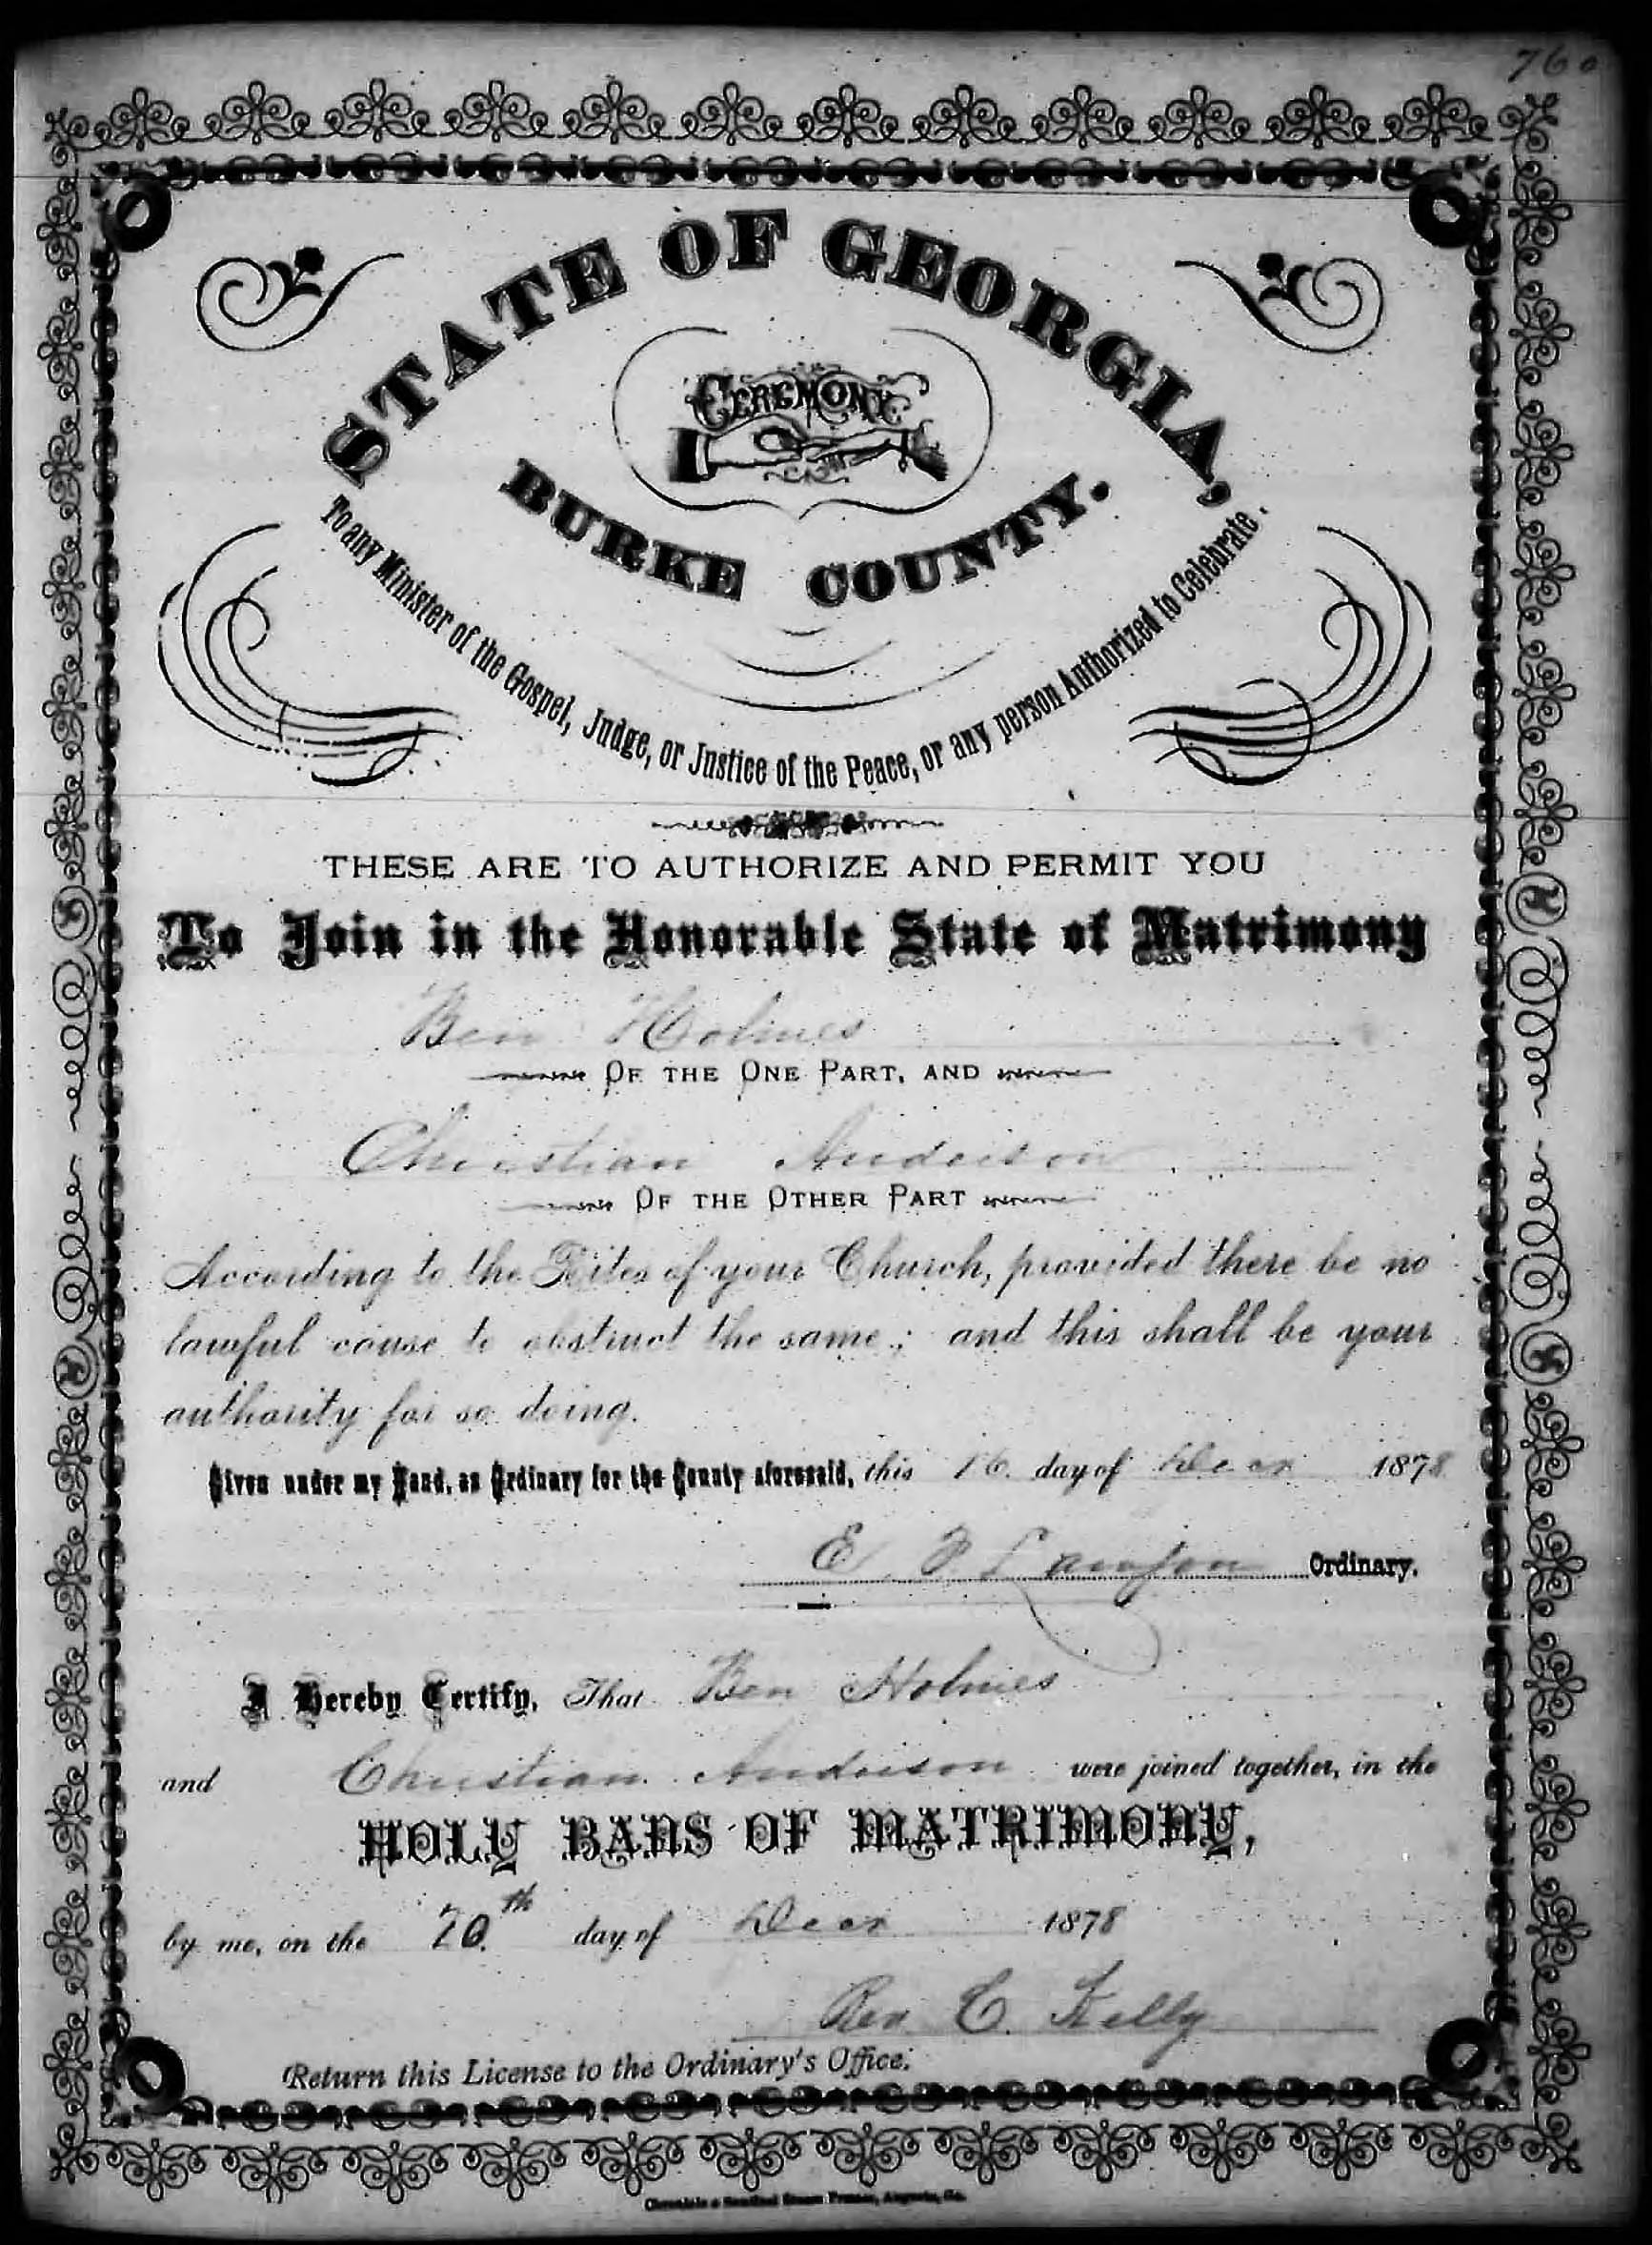 760
STATE OF GEORGIA,
CEREMONY
BURKE COUNTY.
To any Minister of the Gospel, Judge, or Justice of the Peace, or any person Authorized to Celebrate.
THESE ARE TO AUTHORIZE AND PERMIT YOU
To Join in the Honorable State of Matrimony
Ben Holmes
OF THE ONE PART, AND
Christian Anderson
OF THE OTHER PART
According to the Rites of your Church, provided there be no
lawful cause to obstruct the same; and this shall be your
authority for so doing.
Given under my Hand, as Ordinary for the County aforesaid, this 16 day of Decr 1878
E. F Lawson Ordinary.
I Hereby Certify, That Ben Holmes
and Christian Anderson were joined together, in the
HOLY BANS OF MATRIMONY,
by me, on the 20th day of Decr 1878
Rev C. Kelly
Return this License to the Ordinary's Office.
Chronicle & Sentinel Steam Presses, Augusta, Ga.